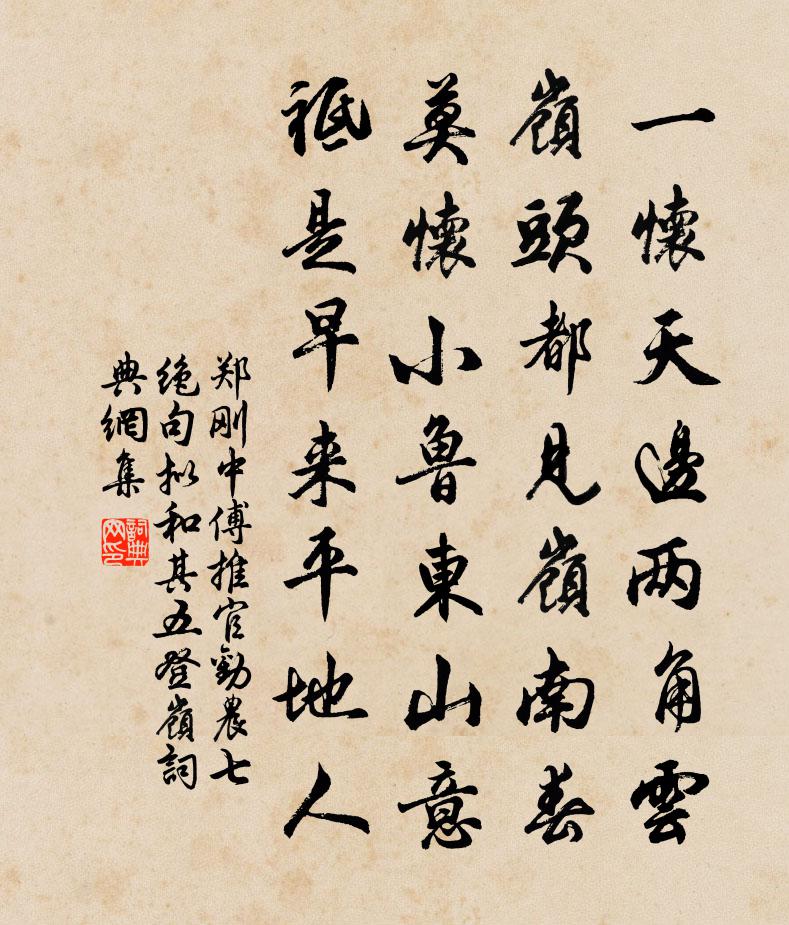 一懷天邊两角雲
嶺頭都見嶺南春
莫懷小魯東山意
祗是早来平地人
郑刚中傅推官勸農七
绝句拟和其五登嶺詞
典網集
詞典
网印